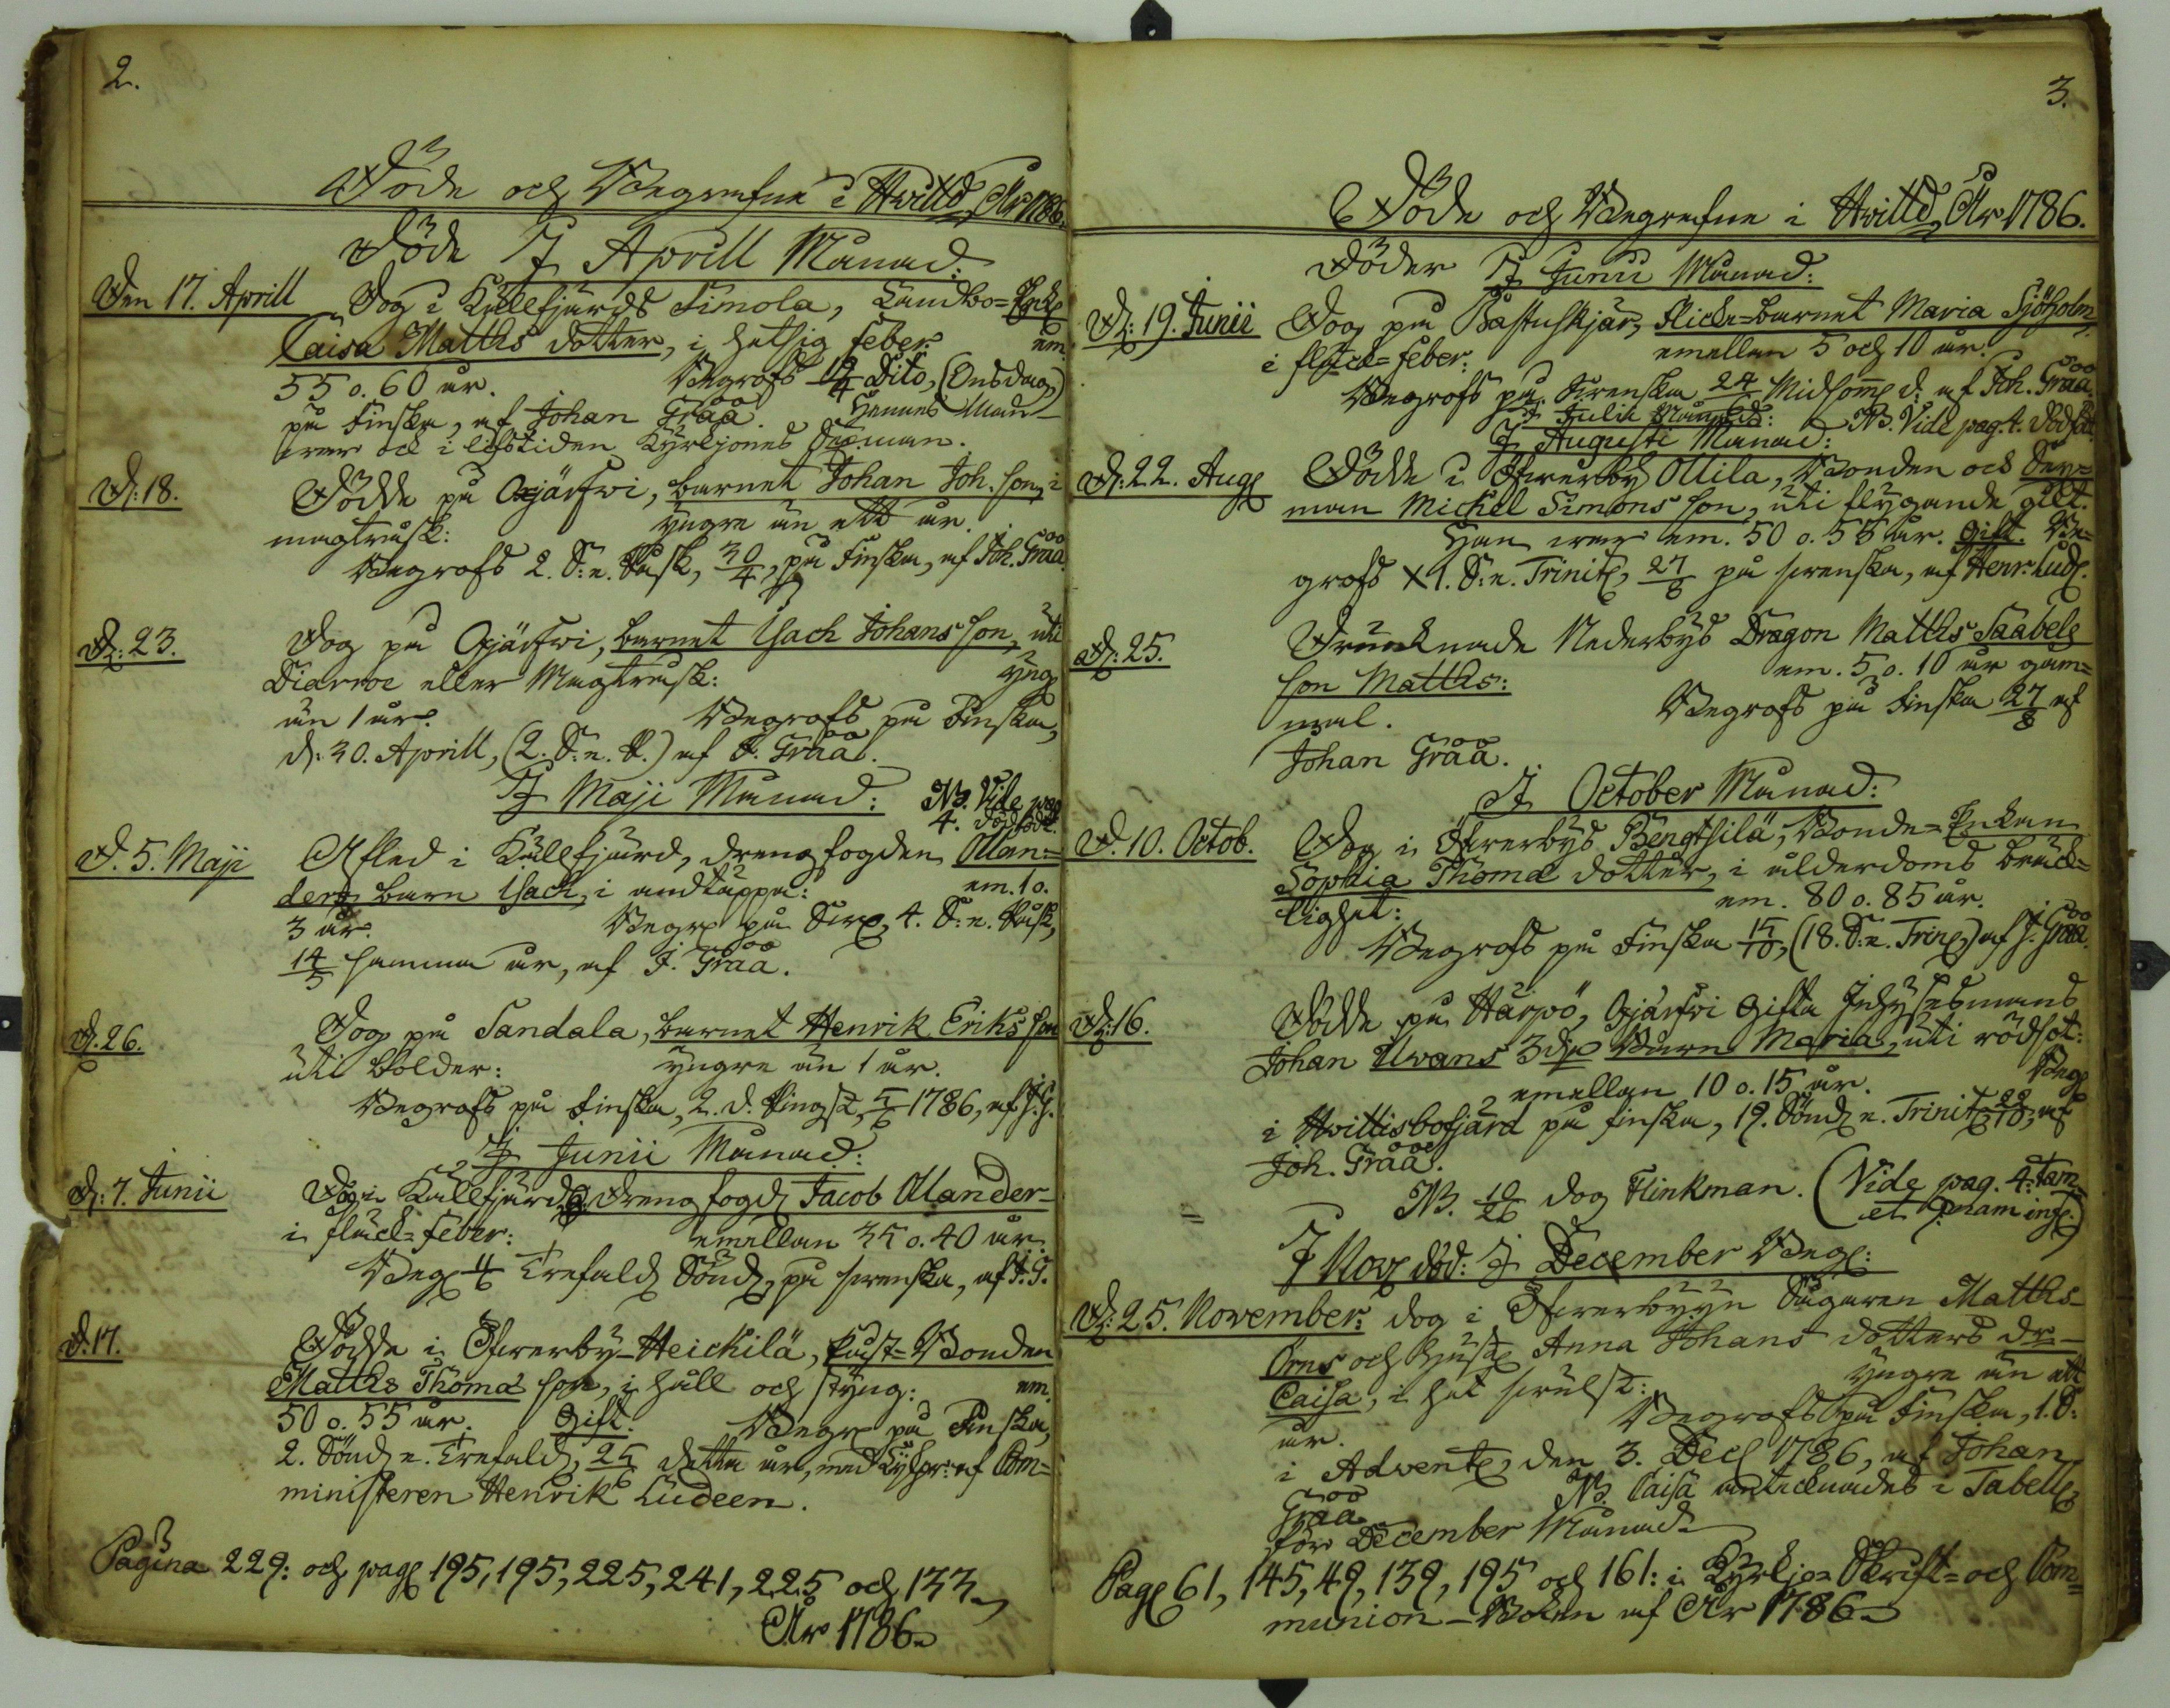 2.
Döde och Begrafne i Hvittd Åhr 1786.
Döde I Aprill Månad:
Den 17. Aprill Dog i Kållfjärds Simola, Landbo=Enk
Caisa Matths dotter, i hetsig feber: em.
55 o. 60 år. Begrofs 19/4 Dito, (Onsdag)
på Finska, af Johan Gråå. Hennes Man
war ock i lifstiden Kyrkjones Sexman.
D: 18. Dödde på Ogjärfwi, barnet Johan Joh. son, i
magtrusk: yngre än ett år.
Begrofs 2. S: e. Påsk, 30/4, på Finska, af Joh. Gråå.
D: 23. Dog på Ogjärfwi, barnet Isach Johans son, uti
Diarroe eller Magtrusk: yng
än 1 år. Begrofs på Finska,
d: 30. Aprill, (2. S: e. P.) af J. Gråå.
I Maji Månad: NB. Vide pag
4. dödfödt.
D. 5. Maji Afled i Kållfjärd, drengfogden Olan=
ders barn Isach, i andtäppa: em. 1 o.
3 år. Begr på Sv, 4. S: e. Påsk,
14/5 samma år, af J. Gråå.
D. 26. Dog på Sandala, barnet Henrik Eriks son
uti bölder: yngre än 1 år.
Begrofs på Finska, 2. d. Pingst, 5/6 1786, af J. G.
I Junii Månad:
D: 7. Junii Dog i Kållfjärd, drengfogd Jacob Olander
i fläck=feber: emellan 35 o. 40 år.
Beg 11/6 Trefald Sönd, på svenska, af J. G.
D. 17. Dödde i Öfwerby Heickilä, Pust=Bonden
Matths Thomæ son, i håll och styng: em.
50 o. 55 år. Gift. Begr på Finska,
2. Sönd e. Trefald, 25/6 detta år, med af Com=
ministeren Henrik Ludeen.
Pagina 229: och pag 195, 195, 225, 241, 225 och 133
Åhr 1786.
3.
Döde och Begrafne i Hvittd Åhr 1786.
Döder I Junii Månad:
D: 19. Junii Dog på Bastuskjär, flicke=barnet Maria Sjöholm,
i fläck=feber: emellan 5 och 10 år.
Begrofs på Svenska 24/6 Midsomm d. af Joh. Gråå.
I Julii Månad: NB. Vide pag. 4. dödföd
I Augusti Månad:
D: 22. Aug Dödde i Öfwerby Ollila, Bonden och Sex=
man Michel Simons son, uti flygande gikt.
Han war em. 50 o. 55 år. Gift. Be=
grofs XI. S: e. Trinit, 27/8 på svenska, af Herr. Lud.
D: 25. Drunknade Nederbys Dragon Matths Saabels
son Matths: em. 5 o. 10 år gam=
mal. Begrofs på Finska 27/8 af
Johan Gråå.
I October Månad:
D. 10. Octob. Dog i Öfwerbys Bengtsilä, Bonde=Enkan
Sophia Thomæ dotter, i ålderdoms bräck=
lighet: em. 80 o. 85 år.
Begrofs på Finska 15/10, (18. S: e. Trin) af J. Gråå.
D: 16. Dödde på Härpö, Ogjärfwi Gifta Inhysesmans
Johan Uvans 3dje Barn Maria, uti rödsot:
emellan 10 o. 15 år. Beg
i Hvittisbofjärd på finska, 19. Sönd e. Trinit 22/10, af
Joh. Gråå.
NB. 10/26 dog Flinkman. (Vide pag. 4: tam
et quam inf)
I Nov död: I December Beg:
D: 25. November: dog i Öfwerbyyn Sågaren Matths
Orns och Hust Anna Johans dotters dr
Caisa, i het svulst: yngre än ett
år. Begrofs på Finska, 1. S:
i Advent, den 3. Dec 1786, af Johan
Gråå. NB. Caisa antecknades i Tabell
för December Månad
Pag 61, 145, 49, 139, 195 och 161: i Kyrkjo=Skrift= och Com=
munion=Boken af Åhr 1786